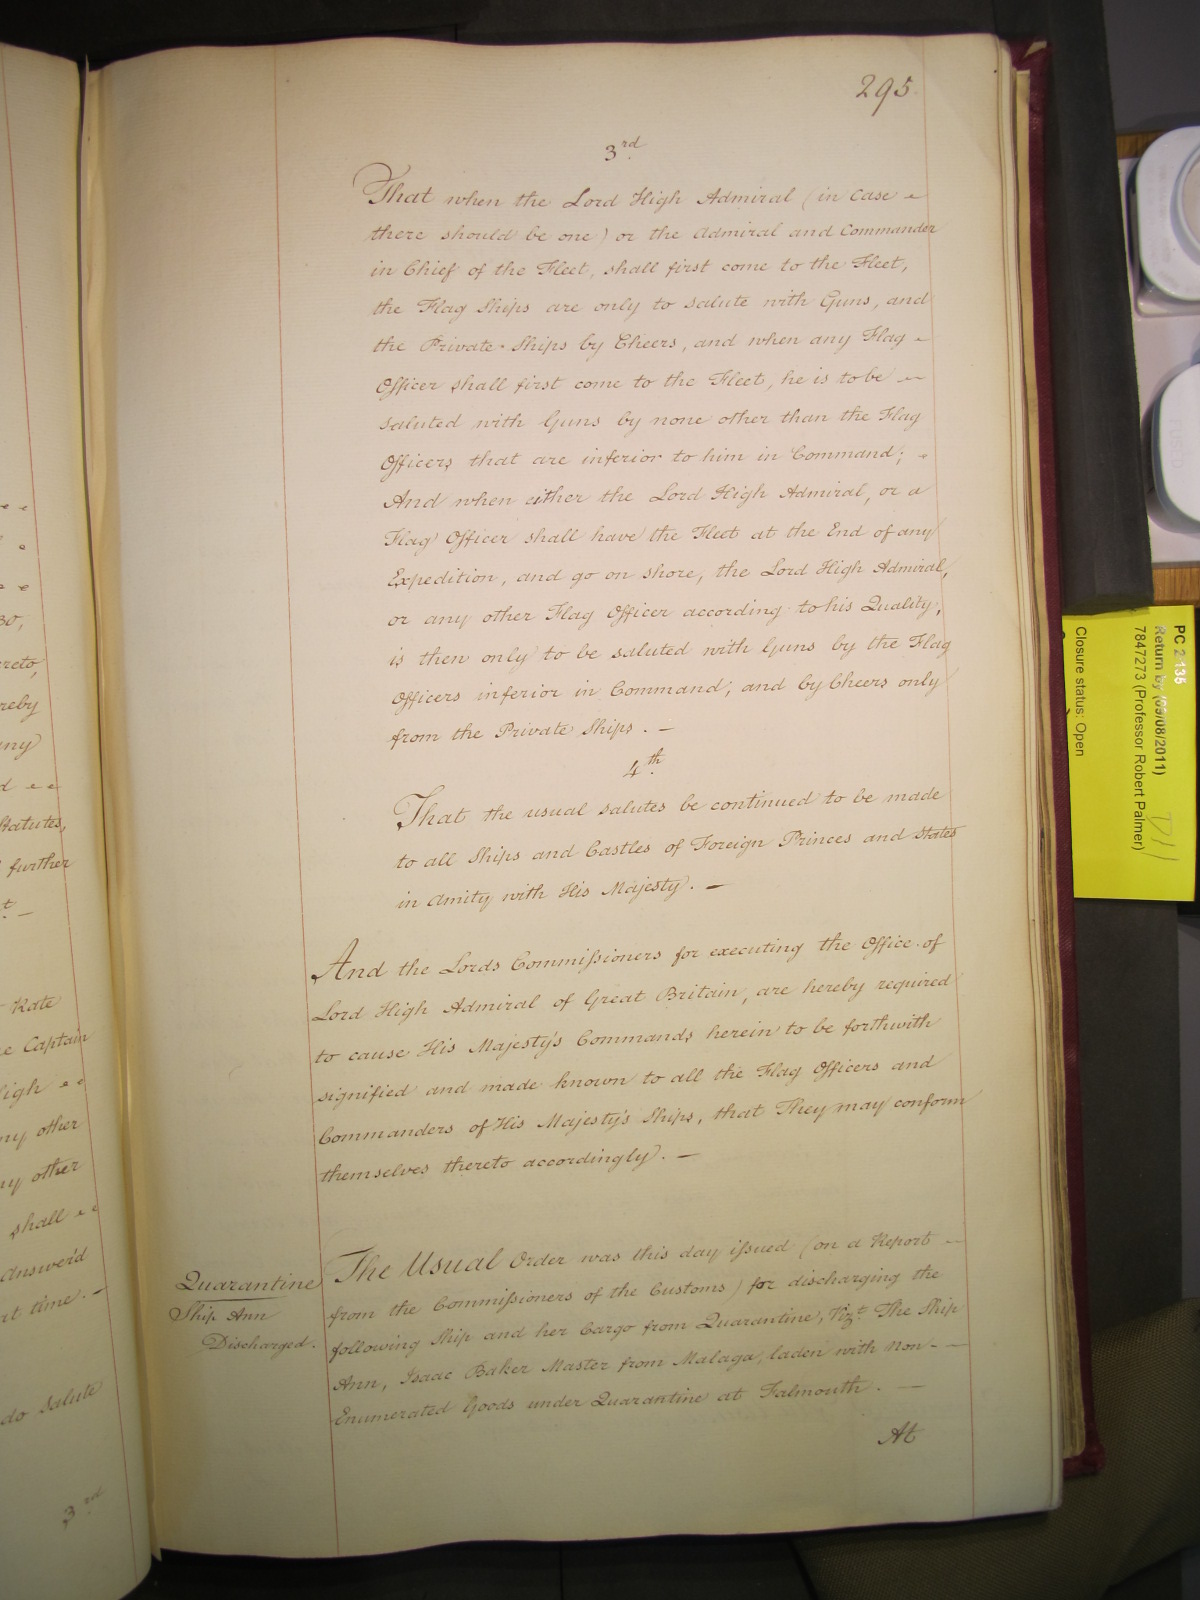 295.
3rd
That when the Lord High Admiral (in Case
there should be one) or the Admiral and Commander
in Chief of the Fleet, shall first come to the Fleet,
the Flag Ships are only to salute with Guns, and
the Private Ships by Cheers, and when any Flag
Officer shall first come to the Fleet, he is to be
saluted with Guns by none other than the Flag
Officers that are inferior to him in Command;
And when either the Lord High Admiral, or a
Flag Officer shall have the Fleet at the End of any
Expedition, and go on shore, the Lord High Admiral,
or any other Flag Officer according to his Quality,
is then only to be saluted with Guns by the Flag
Officers inferior in Command, and by Cheers only
from the Private Ships. —
4th
That the usual salutes be continued to be made
to all Ships and Castles of Foreign Princes and States
in Amity with His Majesty. —
And the Lords Commissioners for executing the Office of
Lord High Admiral of Great Britain, are hereby required
to cause His Majesty's Commands herein to be forthwith
signified and made known to all the Flag Officers and
Commanders of His Majesty's Ships, that They may conform
themselves thereto accordingly. —
Quarantine
Ship Ann
Discharged.
The Usual Order was this day issued (on a Report
from the Commissioners of the Customs) for discharging the
following Ship and her Cargo from Quarantine, Vizt. The Ship
Ann, Isaac Baker Master from Malaga, laden with Non-
Enumerated Goods under Quarantine at Falmouth. —
At
30,
reto,
reby
any
d
Statutes,
further
t —
Rate
e Captain
High
ny other
ny other
shall
Answer'd
at time. —
do salute
3rd
PC 2 135
Return by (09/08/2011)
7847273 (Professor Robert Palmer)
Closure status: Open